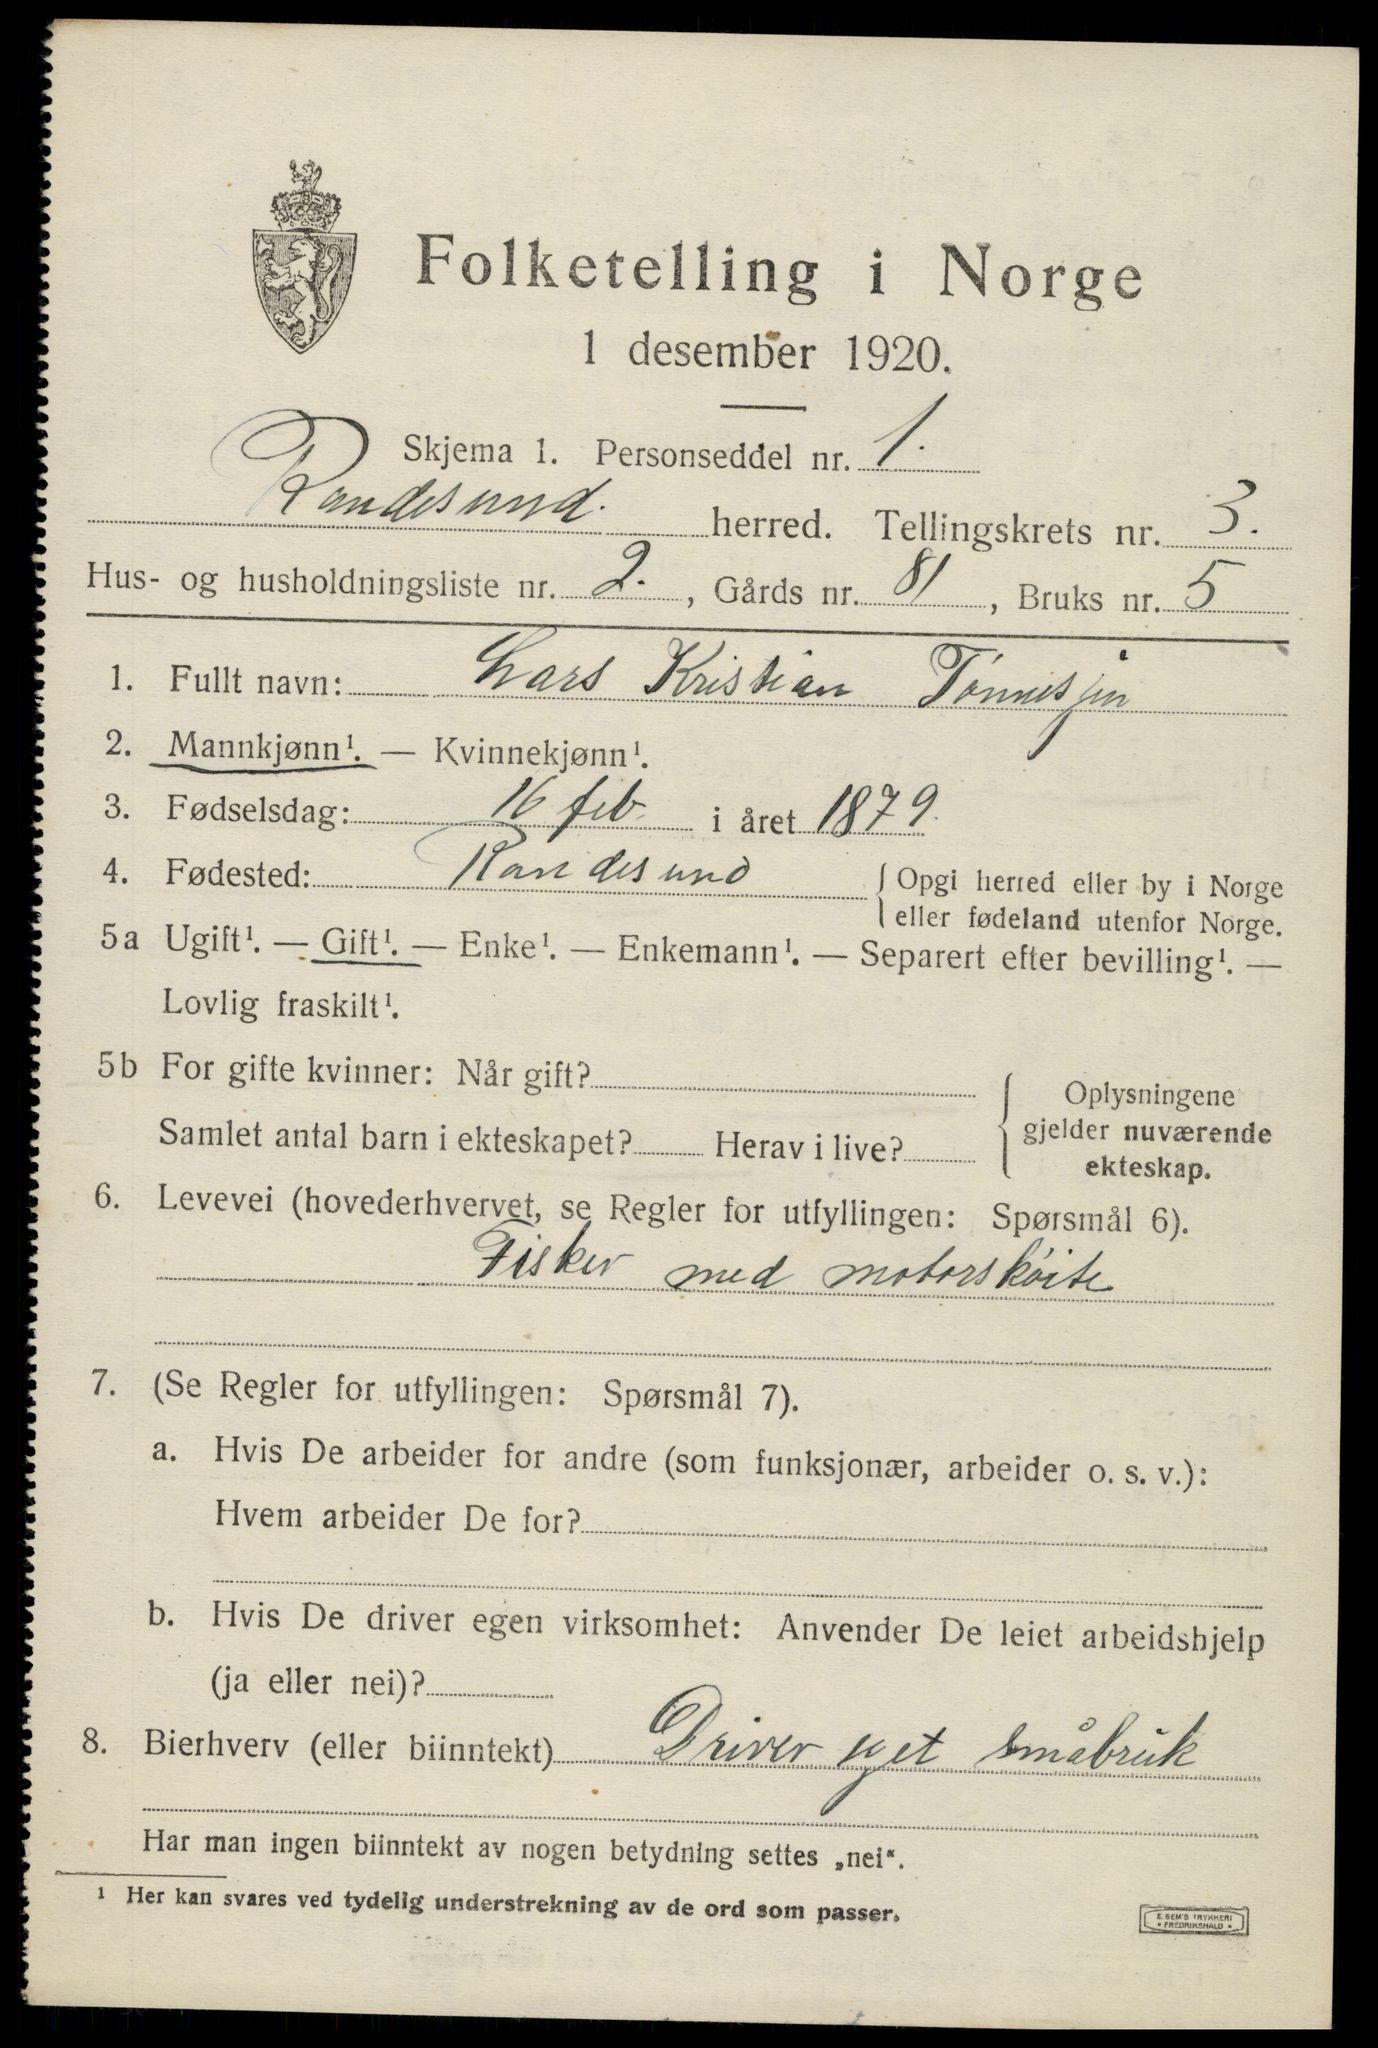 Folketelling i Norge
1 desember 1920.
Skjema 1. Personseddel nr. 1.
Randesund. herred. Tellingskrets nr. 3.
Hus- og husholdningsliste nr. 2. , Gårds nr. 81 , Bruks nr. 5
1. Fullt navn: Lars Kristian Tønnesjen
2. Mannkjønn¹. — Kvinnekjønn¹.
3. Fødselsdag: 16 feb. i året 1879.
4. Fødested: Randesund { Opgi herred eller by i Norge
eller fødeland utenfor Norge.
5a Ugift¹. — Gift¹. — Enke¹. — Enkemann¹. — Separert efter bevilling¹. —
Lovlig fraskilt¹.
5b For gifte kvinner: Når gift?
Samlet antal barn i ekteskapet? Herav i live?
{ Oplysningene
gjelder nuværende
ekteskap.
6. Levevei (hovederhvervet, se Regler for utfyllingen: Spørsmål 6).
Fisker med motorskøite
7. (Se Regler for utfyllingen: Spørsmål 7).
a. Hvis De arbeider for andre (som funksjonær, arbeider o. s. v.):
Hvem arbeider De for?
b. Hvis De driver egen virksomhet: Anvender De leiet arbeidshjelp
(ja eller nei)?
8. Bierhverv (eller biinntekt) Driver eget småbruk
Har man ingen biinntekt av nogen betydning settes „nei“.
¹ Her kan svares ved tydelig understrekning av de ord som passer.
E. SEM'S TRYKKERI
* FREDRIKSHALD *